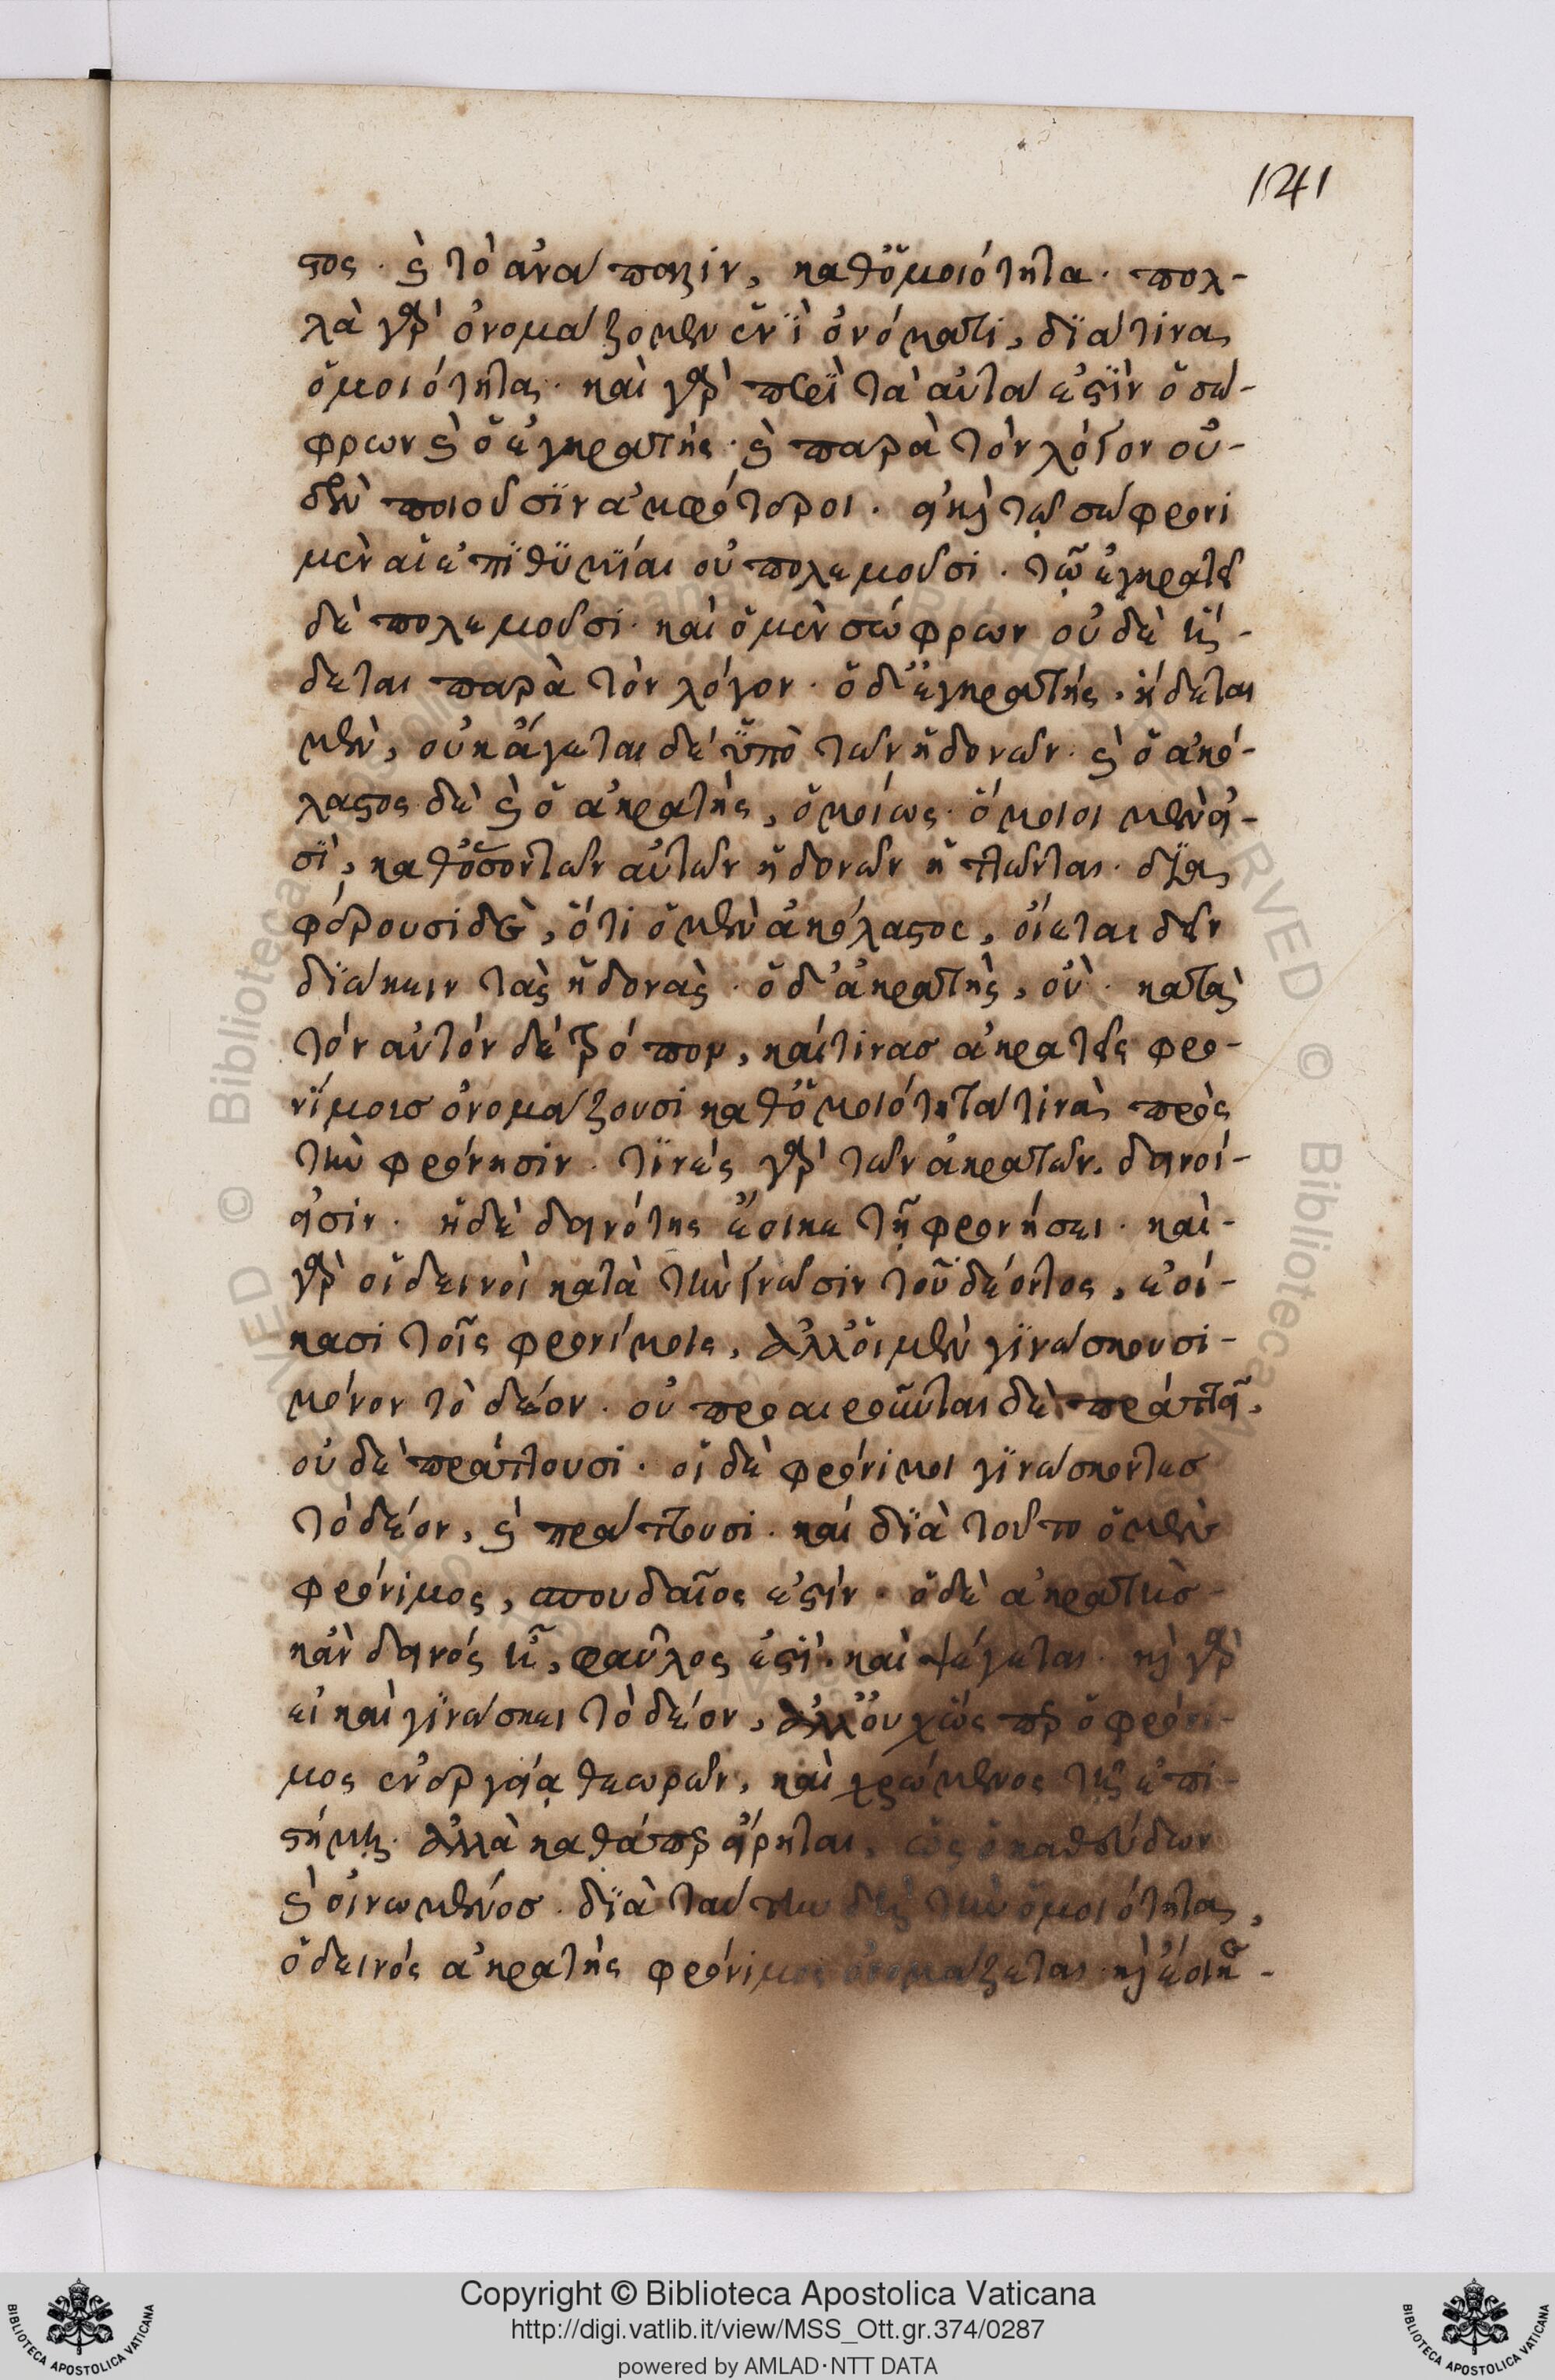 141
στος · καὶ τὸ ἀνάπαλιν, καθ' ὁμοιότητα · πολ-
λὰ γὰρ ὀνομάζομεν ἑνὶ ὀνόματι, διά τινας
ὁμοιότητας · καὶ γὰρ περὶ τὰ αὐτά ἐστιν ὁ σώ-
φρων καὶ ὁ ἐγκρατής · καὶ παρὰ τὸν λόγον οὐ-
δὲν ποιοῦσιν ἀμφότεροι. εἰ καὶ τῷ σώφρονι
μὲν αἱ ἐπιθυμίαι οὐ πολεμοῦσι · τῷ ἐγκρατεῖ
δὲ πολεμοῦσι · καὶ ὁ μὲν σώφρων οὐδὲ ἥ-
δεται παρὰ τὸν λόγον · ὁ δ' ἐγκρατής, ἥδεται
μὲν, οὐκ ἄγεται δὲ ὑπὸ τῶν ἡδονῶν · καὶ ὁ ἀκό-
λαστος δὲ καὶ ὁ ἀκρατὴς, ὁμοίως · ὅμοιοι μὲν εἰ-
σὶ, καθόσον τῶν αὐτῶν ἡδονῶν ἥττωνται · δια-
φέρουσι δὲ, ὅτι ὁ μὲν ἀκόλαστος, οἴεται δεῖν
διώκειν τὰς ἡδονὰς · ὁ δ' ἀκρατὴς, οὐ · κατὰ
τόν αὐτόν δὲ τρόπον, καί τινας ἀκρατεῖς φρο-
νίμοις ὀνομάζουσι καθ' ὁμοιότητά τινα πρὸς
τὴν φρόνησιν · τινὲς γὰρ τῶν ἀκρατῶν, δεινοί
εἰσιν · ἡ δὲ δεινότης ἔοικε τῇ φρονήσει · καὶ-
γὰρ οἱ δεινοὶ κατὰ τὴν γνῶσιν τοῦ δέοντος, ἐοί-
κασι τοῖς φρονίμοις, ἀλλ' οἱ μὲν γινώσκουσι-
μόνον τὸ δέον · οὐ προαιροῦνται δὲ πράττειν,
οὐδὲ πράττουσι · οἱ δὲ φρόνιμοι γινώσκοντες
τὸ δέον, καὶ πράττουσι · καὶ διὰ τοῦτο ὁ μὲν
φρόνιμος, σπουδαῖος ἐστίν · ὁ δὲ ἀκρατὴς-
κἂν δεινός ᾖ, φαῦλος ἐστὶ · καὶ ψέγεται · καὶ γὰρ
εἰ καὶ γινώσκει τὸ δέον, ἀλλ' οὐχ ὥσπερ ὁ φρόνι-
μος ἐνεργείᾳ θεωρῶν, καὶ χρώμενος τῇ ἐπι-
στήμῃ · ἀλλὰ καθάπερ εἴρηται, ὡς ὁ καθεύδων
καὶ οἰνωμένος · διὰ ταύτην δὲ τὴν ὁμοιότητα,
ὁ δεινός ἀκρατής φρόνιμος ὀνομάζεται · καὶ ἔοικε-
Copyright © Biblioteca Apostolica Vaticana
http://digi.vatlib.it/view/MSS_Ott.gr.374/0287
powered by AMLAD·NTT DATA